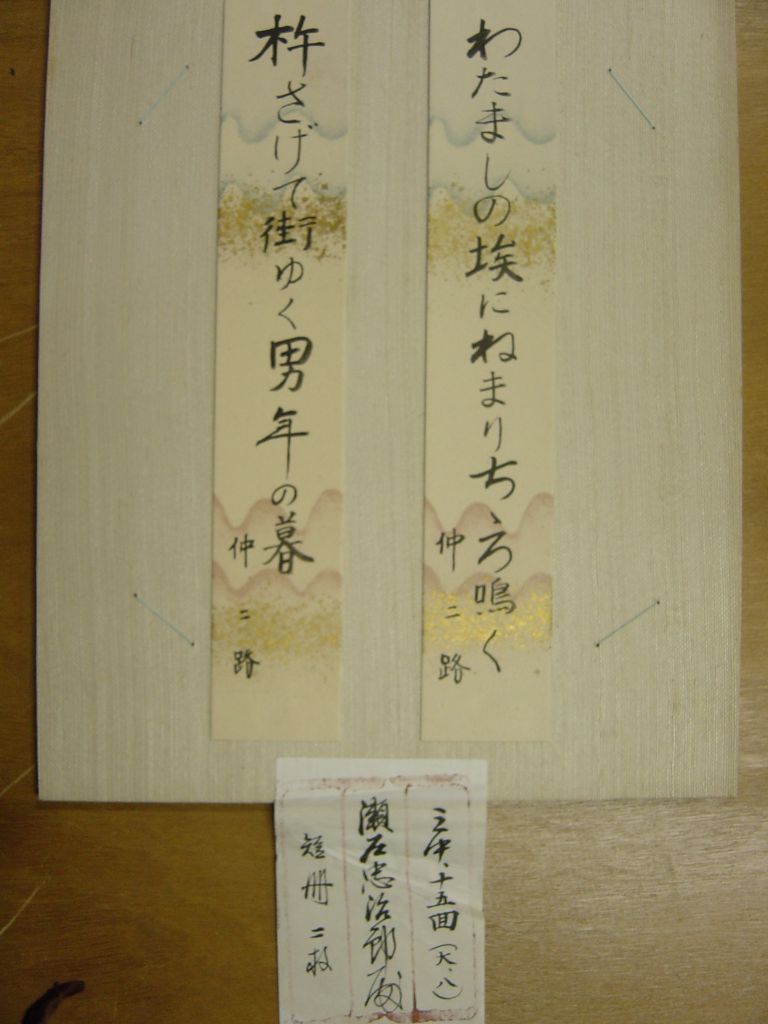 わたましの埃にねまりちゝろ鳴く
仲二路
杵さげて街ゆく男年の暮
仲二路
三中、十五回(大、八)
瀬石忠治郎
短冊二枚